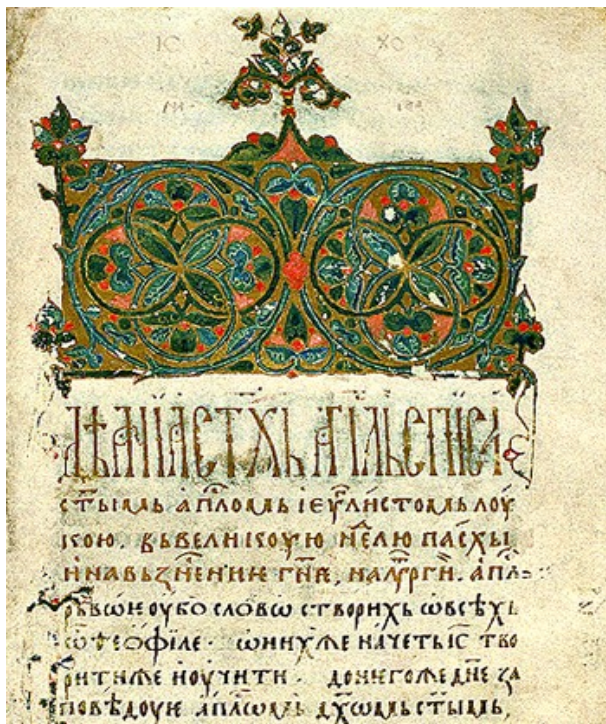 ІС ХС
ДѢАНИІА СТ҃ХЬ АП҃ЛЬ СПИСА
ст҃ымь ап҃ломь і еу҃листомь лоу
кою. вь великоую н҃елю пасхы
и на вьзн҃ение гн҃е, на лу҃рги. ап҃л
рьвѡ оубо словѡ створихь ѡ всѣхь
ѡ҃ ѳеѡфіле · ѡ нихже начеть іс҃ тво
рити же и оучити · до негоже дн҃е за
повѣдоуѥ ап҃лѡмь дх҃ѡмь ст҃ымь,